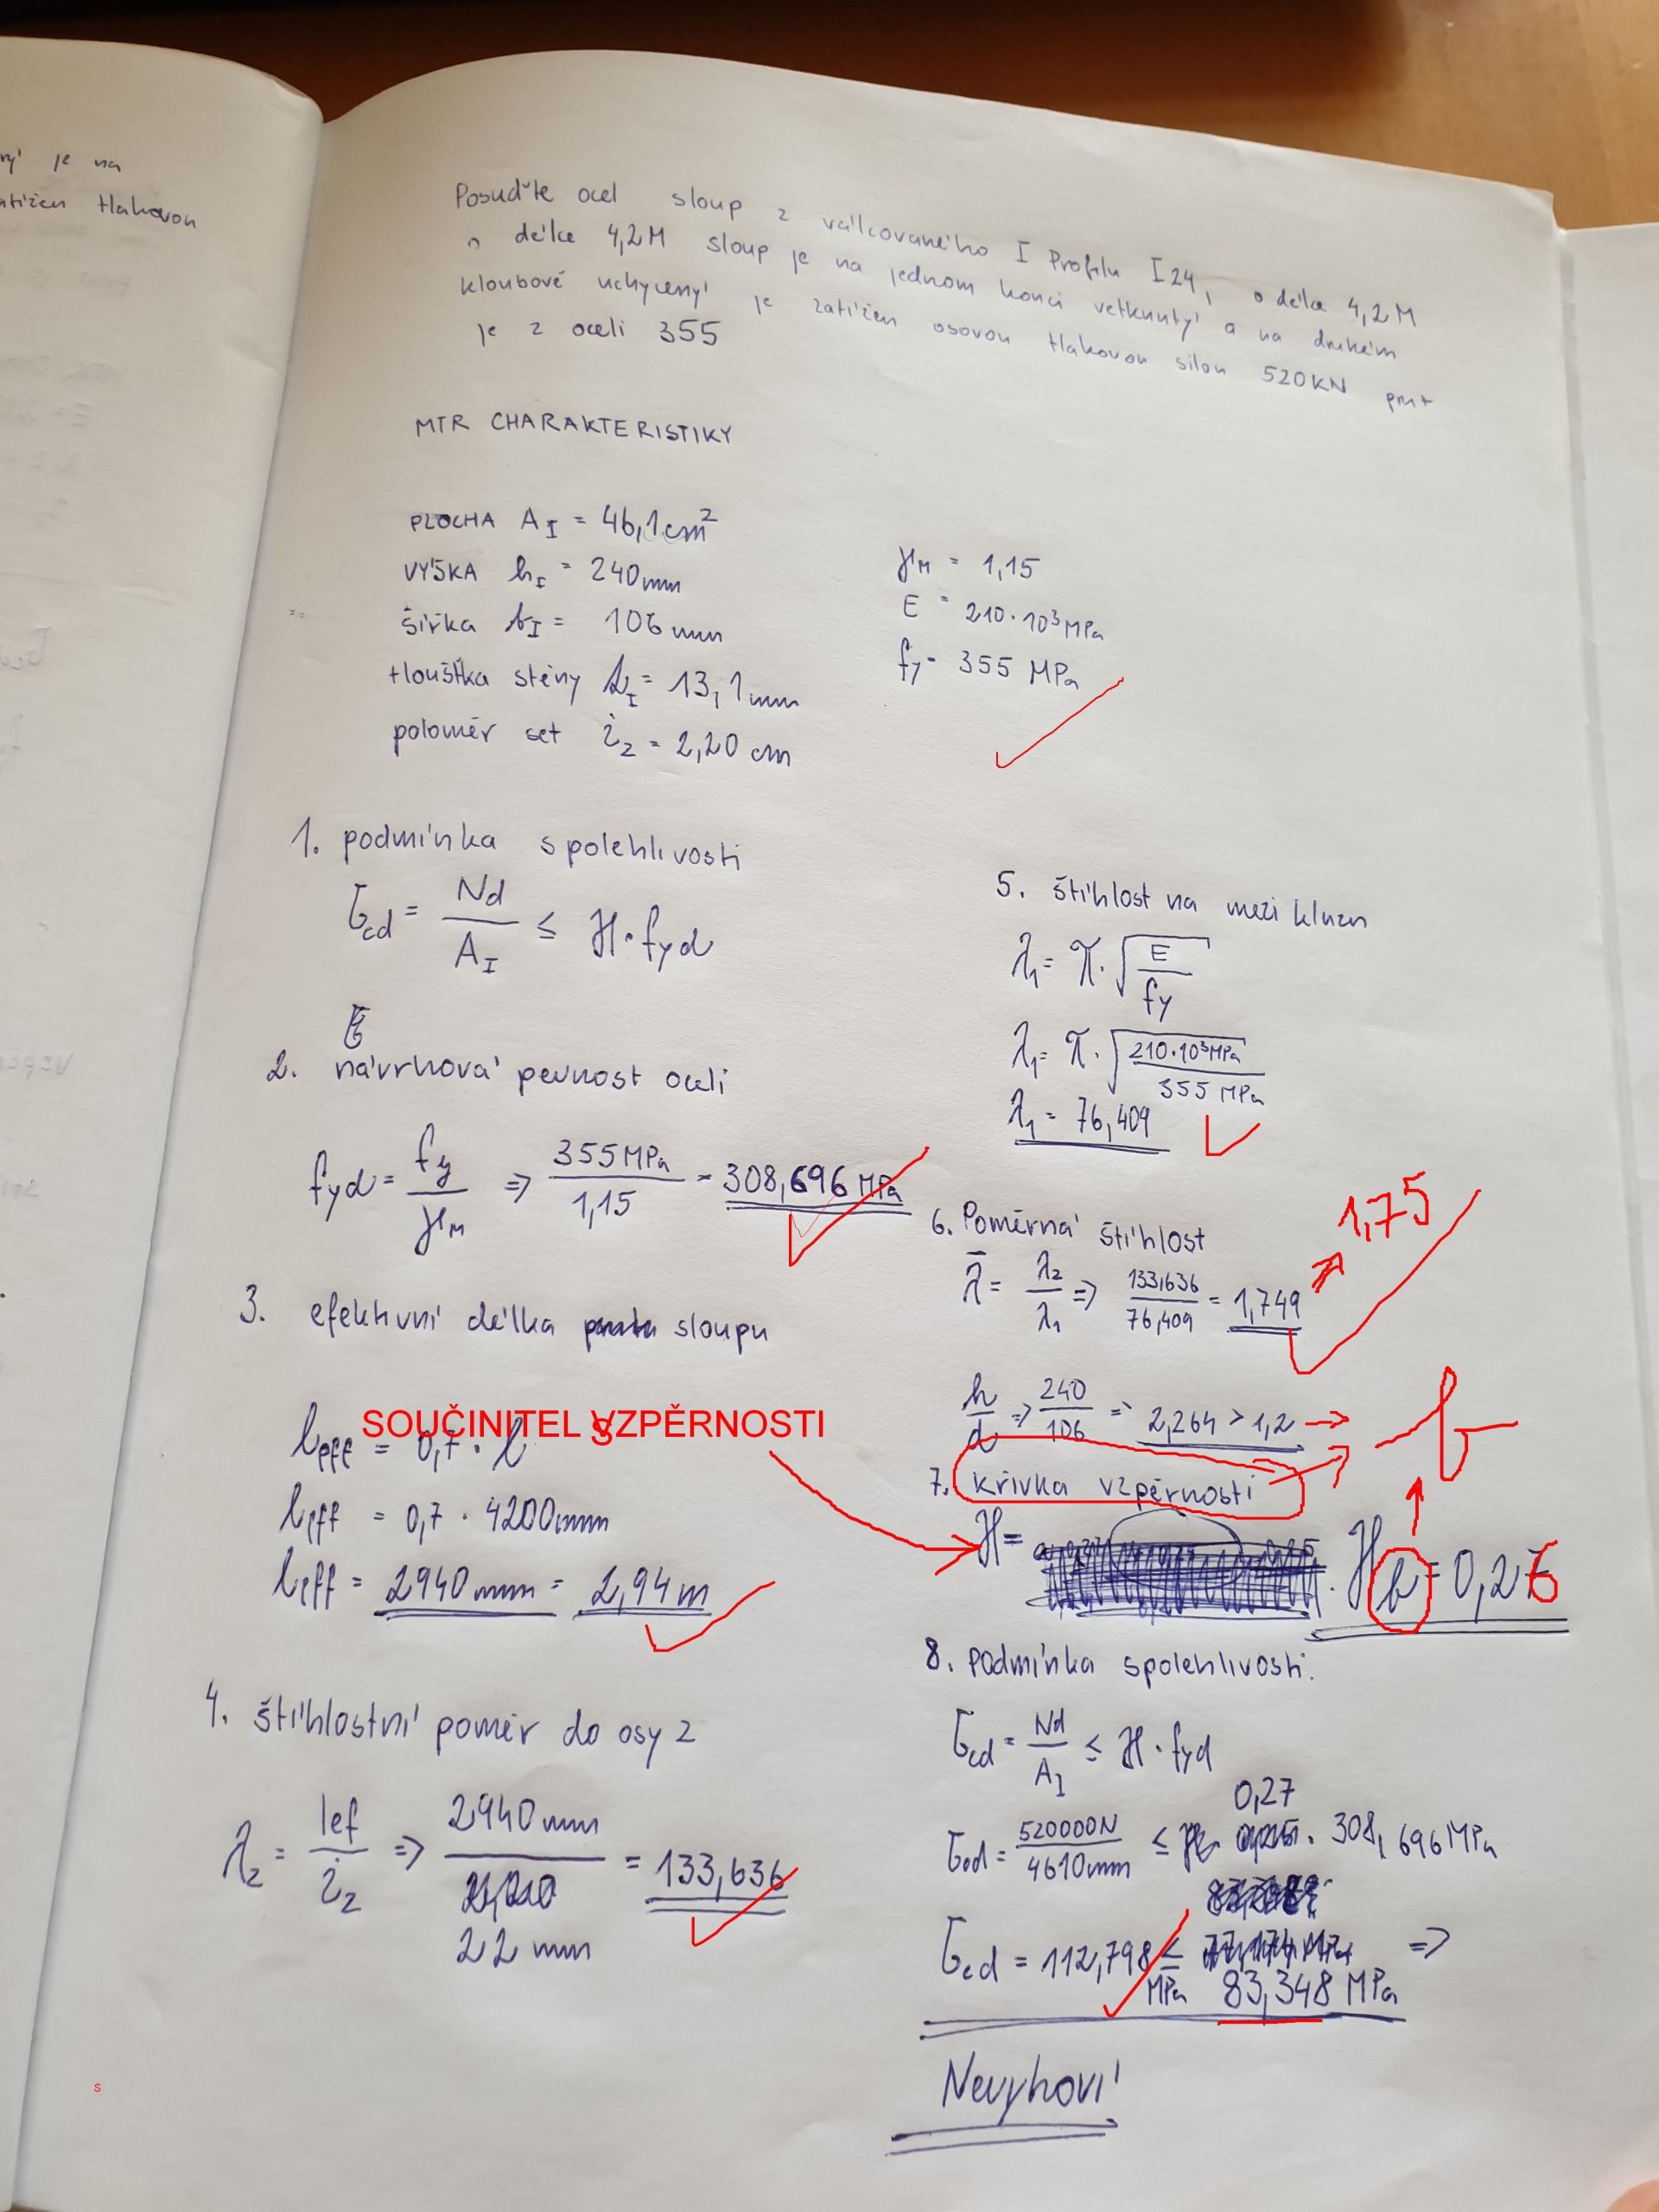 ný je na
atížen tlakovou
Posuďte ocel sloup z válcovaného I Profilu I24, o délce 4,2M
o délce 4,2M sloup je na jednom konci vetknutý a na druhém
kloubově uchycený je zatížen osovou tlakovou silou 520KN
je z oceli 355
MTR CHARAKTERISTIKY
PLOCHA A_I = 46,1cm²
VÝŠKA h_I = 240mm
šířka b_I = 106mm
tloušťka stěny t_I = 13,1mm
poloměr set i_z = 2,20 cm
γ_M = 1,15
E = 210·10³MPa
fy = 355 MPa
1. podmínka spolehlivosti
σ_cd = Nd / A_I ≤ ϰ·fyd
2. návrhová pevnost oceli
fyd = fy / γ_M => 355MPa / 1,15 = 308,696 MPa
3. efektivní délka sloupu
SOUČINITEL VZPĚRNOSTI
S
l_eff = 0,7 · l
l_eff = 0,7 · 4200mm
l_eff = 2940mm = 2,94m
4. štíhlostní poměr do osy z
λ_z = lef / i_z => 2940mm / 22 mm = 133,636
s
5. štíhlost na mezi kluzu
λ₁ = π·√(E / fy)
λ₁ = π·√(210·10³MPa / 355 MPa)
λ₁ = 76,409
6. Poměrná štíhlost
1,75
λ̄ = λ_z / λ₁ => 133,636 / 76,409 = 1,749
h / d => 240 / 106 => 2,264 > 1,2 → b
7. křivka vzpěrnosti
ϰ = ϰ_b = 0,26
8. Podmínka spolehlivosti.
σ_cd = Nd / A_I ≤ ϰ · fyd
σ_cd = 520000N / 4610mm ≤ 0,27 · 308,696MPa
σ_cd = 112,798 MPa ≤ 83,348 MPa =>
Nevyhoví